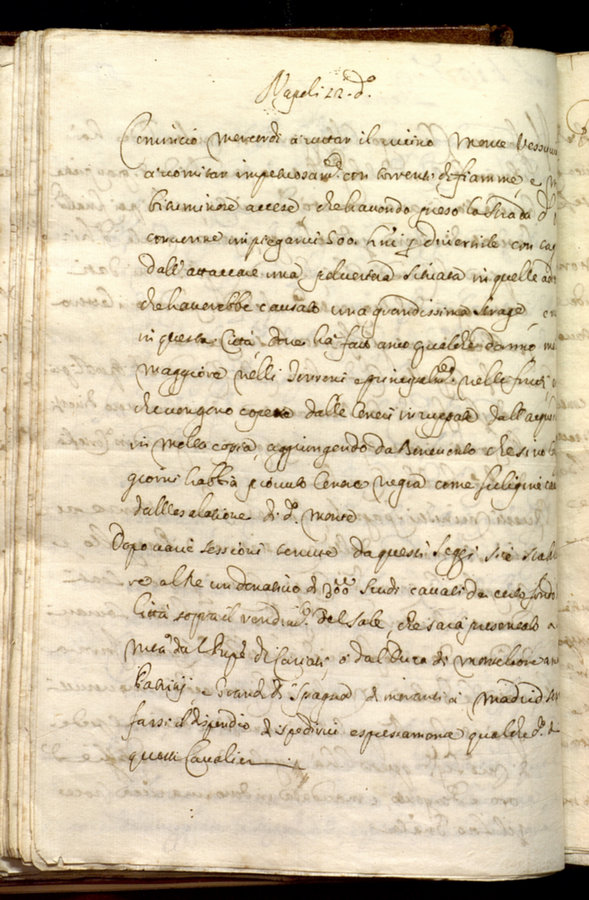 Napoli 22. d.o
Cominciò mercordì a ruttar il vicino Monte Vessuvi
a vomitar impetuosam.te con torrenti di fiamme e
bituminose accese che havendo preso la strada d
convenne impiegarvi 500. huī p divertirle con
dall'attaccare una polveriera situata in quelle
che haverebbe causato una grandissima strage,
in questa Città, dove hà fatto anco qualche danno mà
maggiore nelli Terreni e principalm.te nelle frutti,
che vengono coperte dalle Ceneri dall'acqu
in molta copia, aggiungendo da Benevento che sino
giorni habbia piovuto Cenere negra come fuligine
dall'esalatione di d.o Monte
Dopo varie sessioni tenute da questi Seggi si è stabili
re al Rè un donativo di 300m Scudi cavati da
Città sopra il del Sale, che sarà presentato à
Mtà dal Pnpe di Cariati, ò dal Duca di
Patritij e Grandi di Spagna, dimoranti à Madrid
farsi il dispendio di spedirvi espressamente qualche d.o
questi Cavalieri